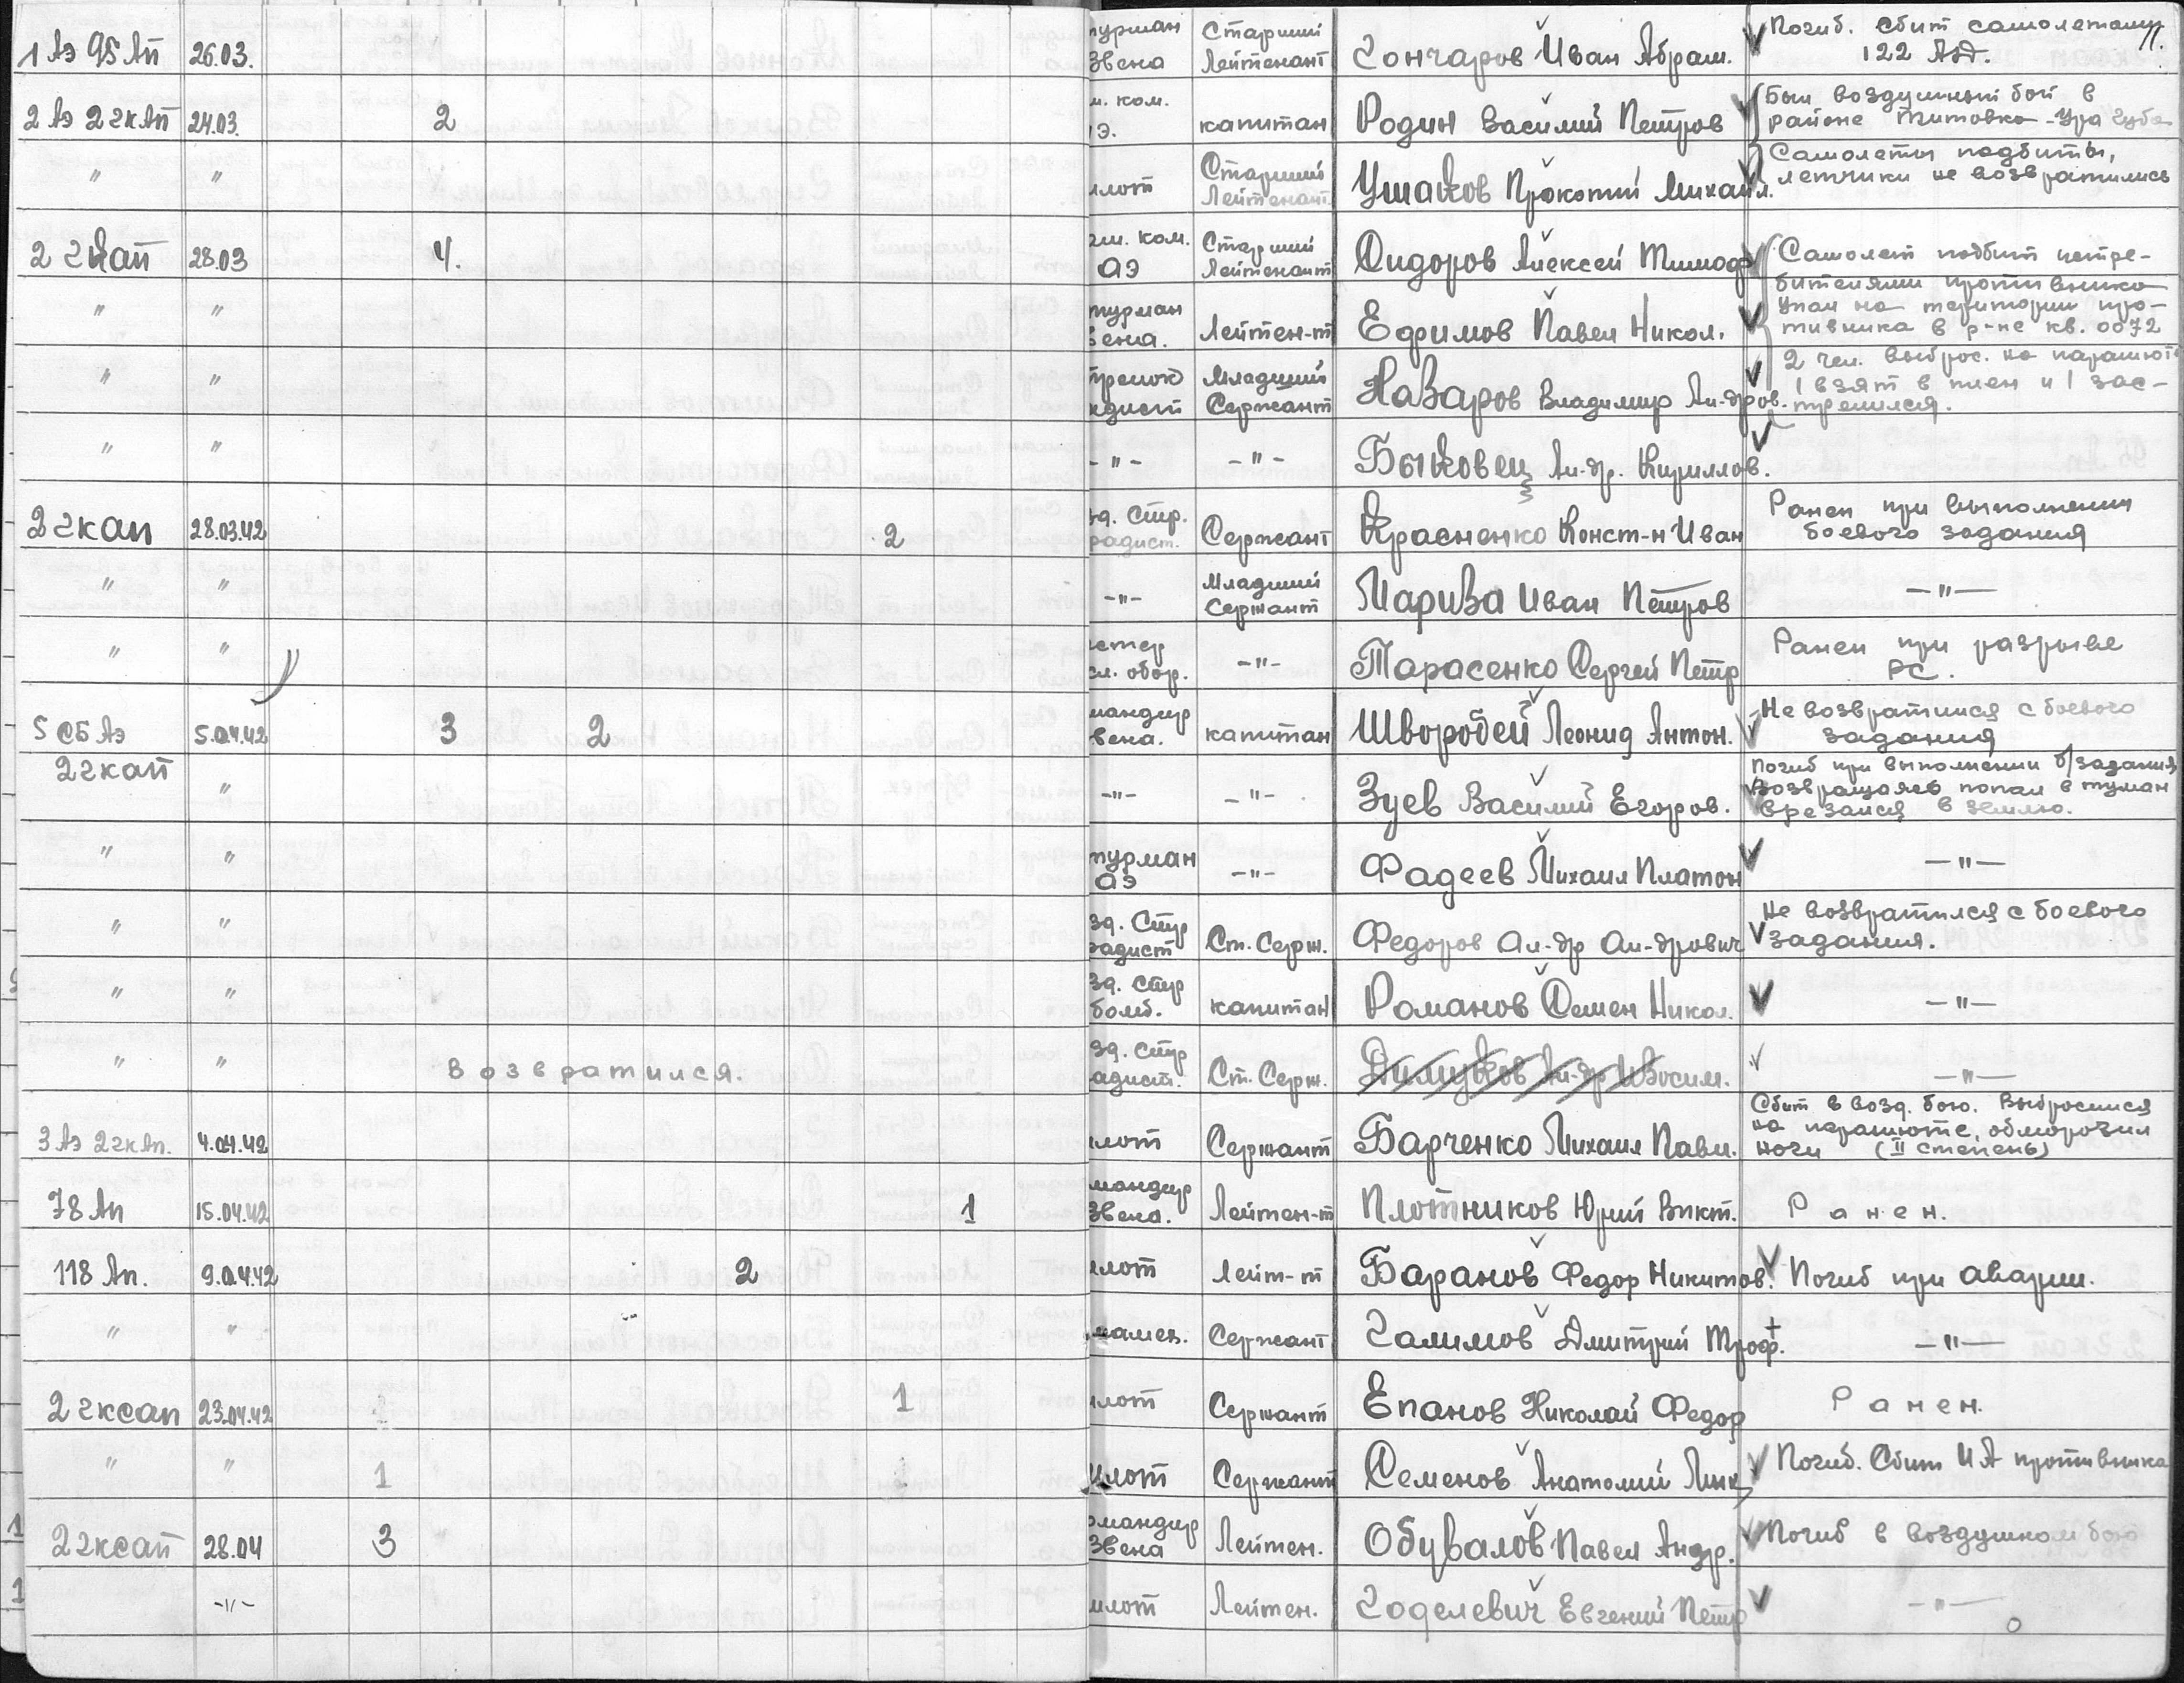 11.
1 Аэ 95 Ап 26.03. турман звена Старший Лейтенант Гончаров Иван Абрам. Погиб. сбит самолетами 122 АД.
2 Аэ 2 гкАп 24.03. 2 м. ком. э. капитан Родин Василий Петров Был воздушный бой в районе Титовка - Ура Губа
" " илот Старший Лейтенант Ушаков Прокопий Михаил. Самолеты подбиты, летчики не возвратились
2 гкап 28.03 4. ам. ком. аэ Старший Лейтенант Сидоров Алексей Тимоф Самолет подбит истре-
бителями противника
" " турман вена. Лейтен-т Ефимов Павел Никол. Упал на територии про-
тивника в р-не кв. 0072
" " трелок адист Младший Сержант Назаров Владимир Ал-дров. 2 чел. выброс. на парашюте
1 взят в плен и 1 зас-
трелился.
" " -"- -"- Быковец Ал-др. Кириллов.
2 гкап 28.03.42 2 зд. Стр. радист. Сержант Красненко Конст-н Иван Ранен при выполнении боевого задания
" " -"- Младший Сержант Марива Иван Петров -"-
" " стер сл. обор. -"- Тарасенко Сергей Петр Ранен при разрыве РС.
5 СБ Аэ 5.04.42 3 2 мандир вена. капитан Шворобей Леонид Антон. Не возвратился с боевого задания
2 гкап " -"- -"- Зуев Василий Егоров. Погиб при выполнении б/задания
Возвращаясь попал в туман
врезался в землю.
" " турман аэ -"- Фадеев Михаил Платон -"-
" " зд. Стр радист Ст. Серж. Федоров Ал-др Ал-дрович Не возвратился с боевого задания.
" " зд. Стр бомб. капитан Романов Семен Никол. -"-
" " возвратился. зд. Стр адист. Ст. Серж. -"-
3 Аэ 2 гкАп. 4.04.42 илот Сержант Барченко Михаил Павл. Сбит в возд. бою. Выбросился
на парашюте, обморозил
ноги (II степень)
78 Ап 15.04.42 1 мандир звена. Лейтен-т Плотников Юрий Викт. Ранен.
118 Ап. 9.04.42 2 илот Лейт-т Баранов Федор Никитов. Погиб при аварии.
" " Сержант Галимов Дмитрий Троф. -"-
2 гксап 23.04.42 1 илот Сержант Епанов Николай Федор Ранен.
" " 1 илот Сержант Семенов Анатолий Погиб. Сбит ИА противника
2 гксап 28.04 3 омандир звена Лейтен. Обувалов Павел Андр. Погиб в воздушном бою
-"- илот Лейтен. Годелевич Евгений Петр -"-